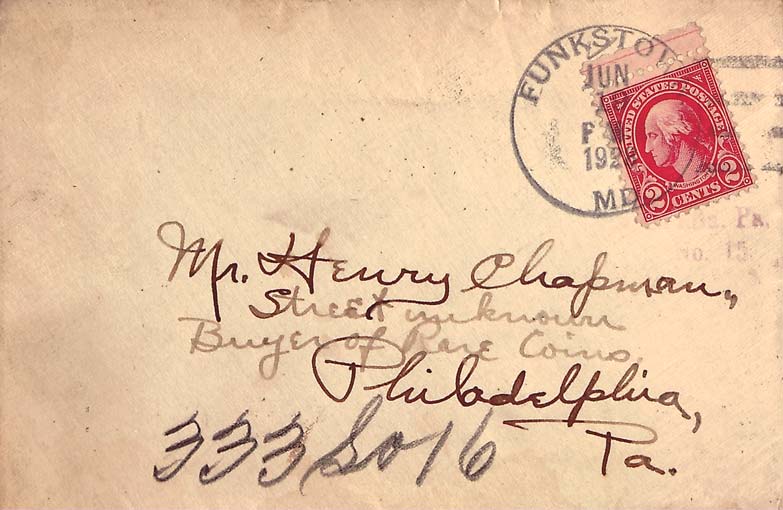 FUNKSTOW
JUN
P
192
MD
UNITED STATES POSTAGE
WASHINGTON
2 CENTS 2
Pa.
No. 15.
Mr. Henry Chapman,
Street unknown
Buyer of Rare Coins
Philadelphia,
Pa.
333 So 16